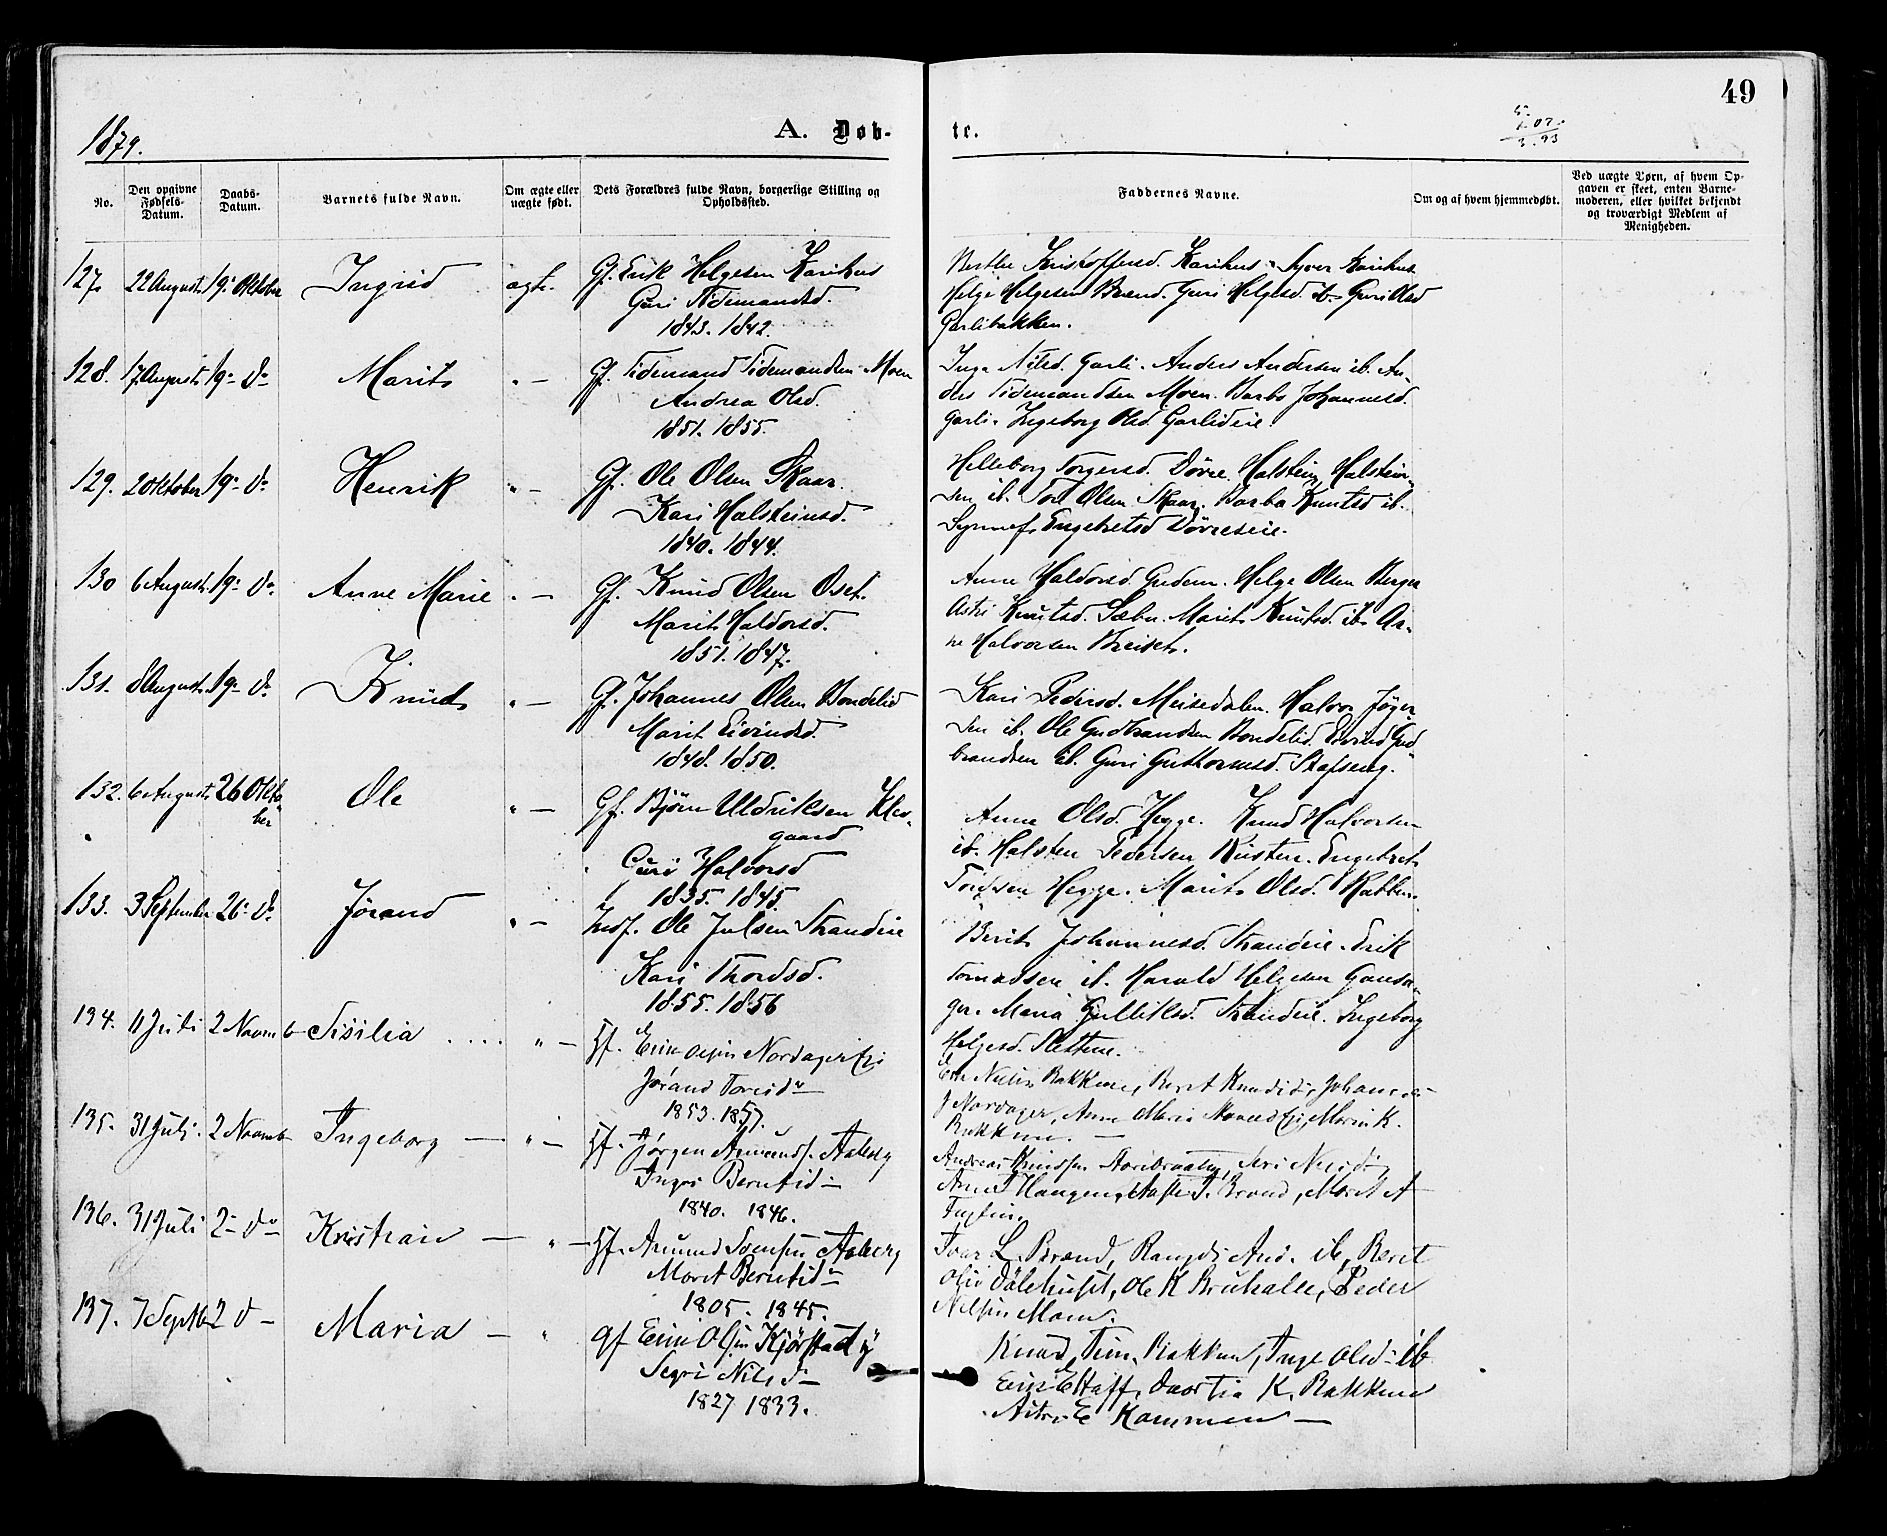 49
1879.
A. Døb-
te.
No.
Den opgivne Fødsels-Datum.
Daabs-Datum.
Barnets fulde Navn.
Om ægte eller uægte født.
Dets Forældres fulde Navn, borgerlige Stilling og Opholdssted.
Faddernes Navne.
Om og af hvem hjemmedøbt.
Ved uægte Børn, af hvem Op-
gaven er skeet, enten Barne-
moderen, eller hvilket bekjendt
og troværdigt Medlem af
Menigheden.
127. 22 August 19. Oktober Ingrid ægt. Gf. Erik Helgesen Karihus
Guri Tidemandsd.
1843. 1842.
Kristoffersd. Karihus. Syver Karihus
Helge Helgesen Brænd. Guri Helgesd. ib. Guri Olsd
Garlibakken.
128. 17 August 19 - do Marit " — Gf. Tidemand Tidemandsen Moen
Andrea Olsd.
1851. 1855.
Inga Nilsd. Garli. Anders Andersen ib. An-
ders Tidemandsen Moen. Barbo Johannesd.
Garli. Ingeborg Olsd. Garlieie
129. 2 Oktober 19 - do Henrik " — Gf. Ole Olsen Skaar.
Kari Halsteinsd.
1840. 1844.
Helleborg Torgersd. Dövre. Halstein Halstein-
sen ib. Tore Olsen Skaar. Barbo Knutsd ib.
Engebretsd Dövreeie.
130 6 August 19 - do Anne Marie " — Gf. Knud Olsen Öset.
Marit Haldorsd.
1851. 1847.
Anne Haldorsd. Helge Olsen Berger
Astri Knutsd. Sæbu. Marit Knutsd. ib. Ar-
ne Halvorsen
131. 8 August 19 - do Knud " — Gf. Johannes Olsen Bondelid
Marit Eivindsd.
1848. 1850.
Kari Pedersd. Meisedalen. Halvor
sen ib. Ole Gudbrandsen Bondelid. Eivind Gud-
brandsen ib. Guri Guttormsd. Stafseng.
132. 6 August 26 Okto-
ber Ole " — Gf. Bjørn Uldriksen Klev-
gaard
Guri Halvorsd
1835. 1845.
Anne Olsd. Hegge. Knud Halvorsen
ib. Halsten Pedersen Engebret
Tordsen Hegge. Marit Olsd.
133. 3 September 26 - do Jörand " — Indf. Ole Julsen Strandeie
Kari Thordsd.
1855. 1856
Berit Johannesd. Strandeie. Erik
Tomassen ib. Harald Helgesen Gausa-
ger. Maria Gulliksd. Strandeie. Ingeborg
Helgesd. Slettene.
134. 11 Juli 2 Novemb Sisilia .... " — Gf. Erik Olsen Nordager Ej.
Jörand Toresd.
1853. 1857.
Nielsen Bakkene, Beret Knudsd., Johannes
Nordager, Anne Maria Ej, Marin K.
Bakkene. —
135. 31 Juli. 2 Novemb Ingeborg — " — Gf. Jörgen Amunds. Aaberg
Ingri Berntsd —
1840. 1846.
Andreas Knudsen Siri
Anne Haugen, Brænd, Marit A
136. 31 Juli 2 - do Kristian — " — Gf. Amund Svensen Aaberg
Marit Berntsd
1805. 1845.
Ivar L. Brænd, Rangdi And. ib, Beret
Olsd Dalehuset, Ole K Bruhalle, Peder
Nilsen Moen.
137. 7 Septb 2 d — Maria — " Gf Erik Olsen Kjörstad Ej
Segri Nilsd —
1827 1833.
Knud Tim. Bakken, Inge Olsd — ib
Dortia K. Bakkene
Astri E Kammen —